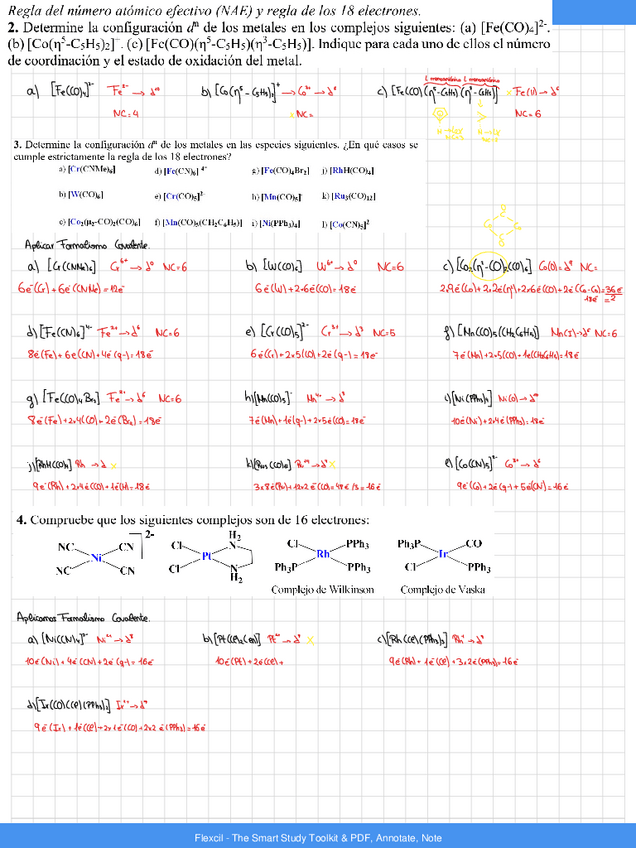 Regla del número atómico efectivo (NAE) y regla de los 18 electrones.
2. Determine la configuración dⁿ de los metales en los complejos siguientes: (a) [Fe(CO)₄]²⁻.
(b) [Co(η⁵-C₅H₅)₂]⁻. (c) [Fe(CO)(η⁵-C₅H₅)(η³-C₅H₅)]. Indique para cada uno de ellos el número
de coordinación y el estado de oxidación del metal.
a) [Fe(CO)₄]²⁻
NC=4
b) [Co(η⁵-C₅H₅)₂]
NC=
c) [Fe(CO)(η⁵-C₅H₅)(η³-C₅H₅)]
NC=6
3. Determine la configuración dⁿ de los metales en las especies siguientes. ¿En qué casos se
cumple estrictamente la regla de los 18 electrones?
a) [Cr(CNMe)₆] d) [Fe(CN)₆]⁴⁻ g) [Fe(CO)₄Br₂] j) [RhH(CO)₄]
b) [W(CO)₆] e) [Cr(CO)₅]²⁻ h) [Mn(CO)₅]⁻ k) [Ru₃(CO)₁₂]
c) [Co₂(μ₂-CO)₂(CO)₆] f) [Mn(CO)₅(CH₂C₆H₅)] i) [Ni(PPh₃)₄] l) [Co(CN)₅]²
Aplicar Formalismo Covalente.
a) [Cr(CNMe)₆] Cr⁶⁺→d⁰ NC=6
6e⁻(Cr)+6e⁻(CNMe)=12e⁻
b) [W(CO)₆] W⁶⁺→d⁰ NC=6
6e(W)+2·6e(CO)=18e
NC=
d) [Fe(CN)₆]⁴⁻ Fe²⁺→d⁶ NC=6
8e(Fe)+6e(CN)+4e(q-)=18e
e) [Cr(CO)₅]²⁻ NC=5
6e(Cr)+2×5(CO)+2e(q-)=18e⁻
f) [Mn(CO)₅(CH₂C₆H₅)] Mn(I)→d⁶ NC=6
7e(Mn)+2×5(CO)+1e(CH₂C₆H₅)=18e
g) [Fe(CO)₄Br₂] Fe²⁺→d⁶ NC=6
8e(Fe)+2×4(CO)+2e(Br₂)=18e
h) [Mn(CO)₅]⁻
7e(Mn)+1e(q-)+2×5e(CO)=18e
i) [Ni(PPh₃)₄] Ni(0)→d¹⁰
10e(Ni)+2×4e(PPh₃)=18e
j) [RhH(CO)₄] Rh →d x
9e⁻(Rh)+2×4e(CO)+1e(H)=18e
3×8e(Ru)+12×2e(CO)=48e/3=16e
l) [Co(CN)₅]²⁻
9e⁻(Co)+2e(q-)+5e(CN)=16e
4. Compruebe que los siguientes complejos son de 16 electrones:
NC CN 2-
Ni
NC CN
Cl H₂ N
Pt
Cl N H₂
Cl PPh₃
Rh
Ph₃P PPh₃
Complejo de Wilkinson
Ph₃P CO
Ir
Cl PPh₃
Complejo de Vaska
Aplicamos Formalismo Covalente.
a) [Ni(CN)₄]²⁻ Ni²⁺→d⁸
10e(Ni)+4e(CN)+2e(q-)=16e
b) [Pt(Cl)₂(en)]
10e(Pt)+2e(Cl)+
c) [Rh(Cl)(PPh₃)₃] Rh⁺→d⁸
9e(Rh)+1e(Cl)+3×2e(PPh₃)=16e
d) [Ir(CO)(Cl)(PPh₃)₂]
Flexcil - The Smart Study Toolkit & PDF, Annotate, Note